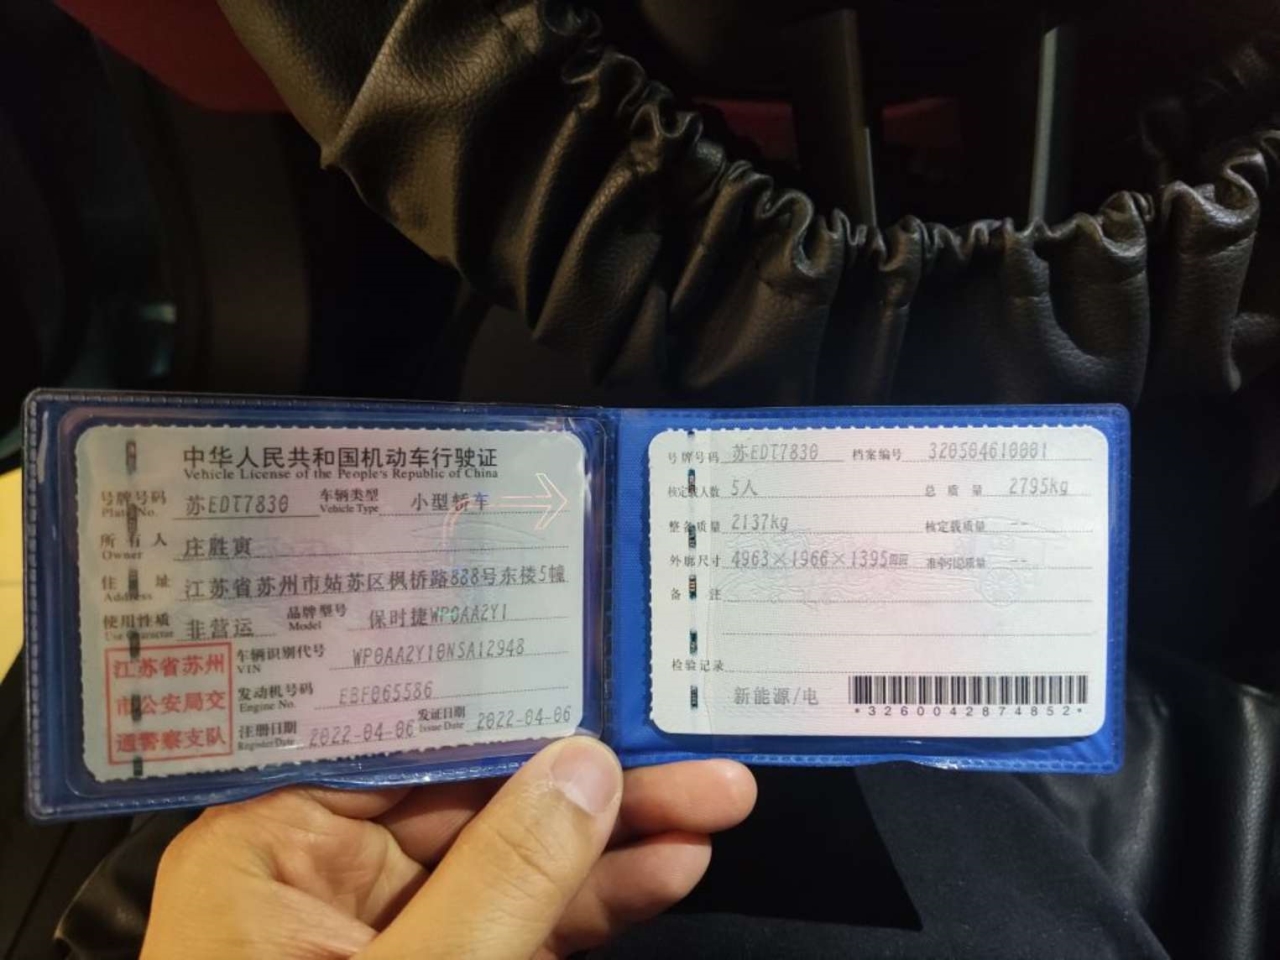 中华人民共和国机动车行驶证
Vehicle License of the People's Republic of China
号牌号码 Plate No. 苏EDT7830 车辆类型 Vehicle Type 小型轿车
所有人 Owner 庄胜寅
住址 Address 江苏省苏州市姑苏区枫桥路888号东楼5幢
使用性质 Use Character 非营运 品牌型号 Model 保时捷WP0AA2Y1
车辆识别代号 VIN WP0AA2Y10NSA12948
发动机号码 Engine No. EBF065586
注册日期 Register Date 2022-04-06 发证日期 Issue Date 2022-04-06
江苏省苏州
市公安局交
通警察支队
号牌号码 苏EDT7830 档案编号 320504610001
核定载人数 5人 总质量 2795kg
整备质量 2137kg 核定载质量 --
外廓尺寸 4963×1966×1395mm 准牵引总质量 --
备注
检验记录
新能源/电
*3260042874852*